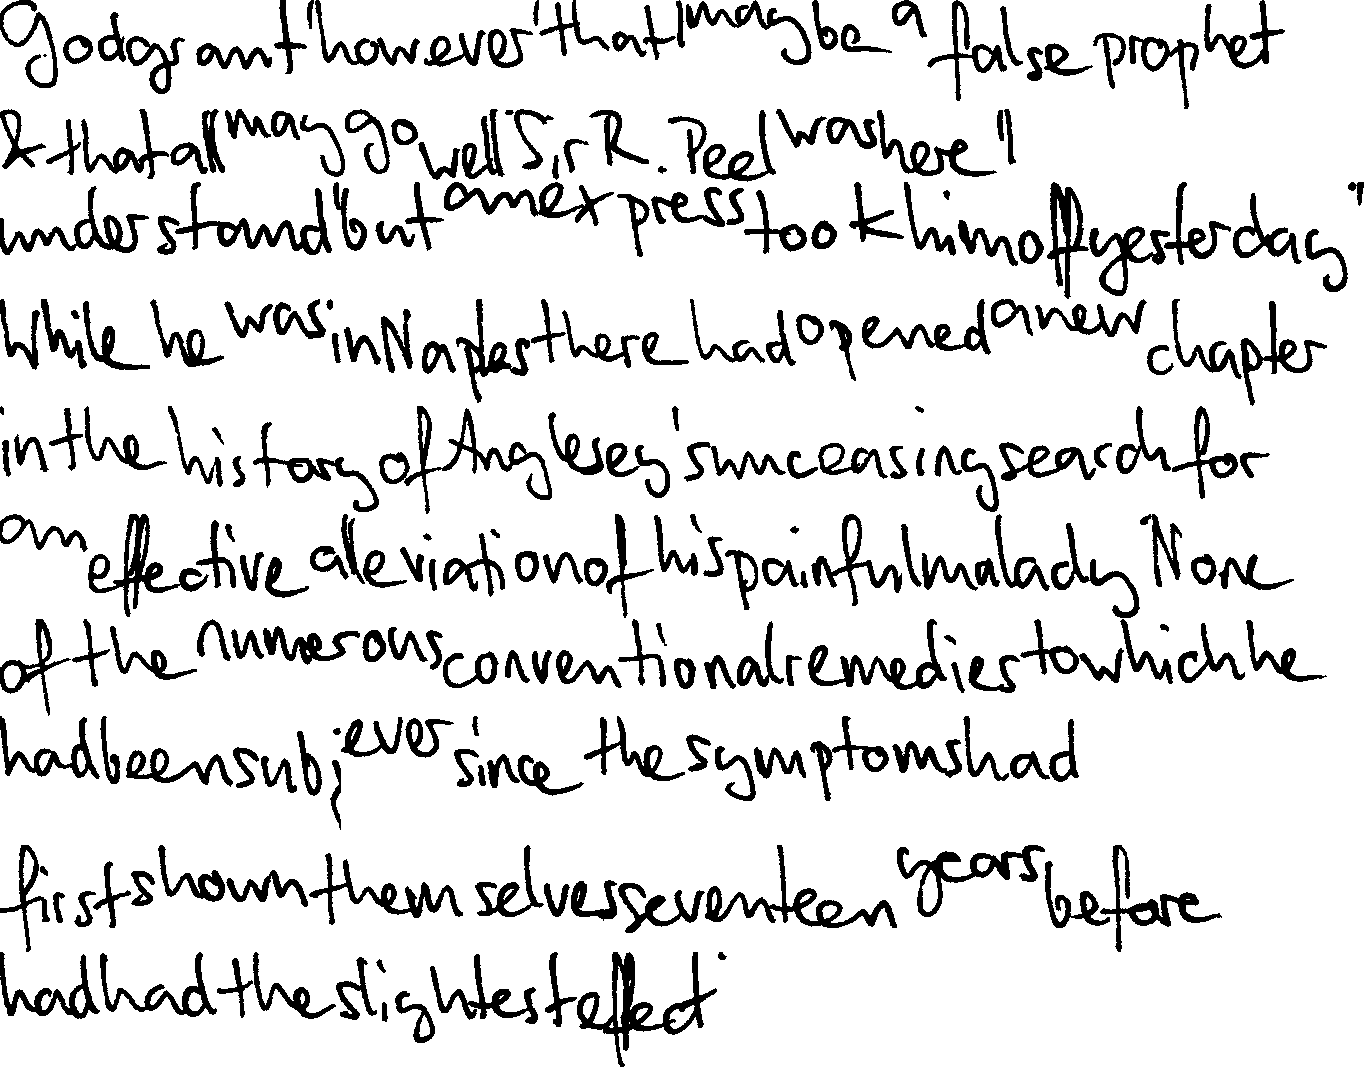 God grant "however" that I may be a false prophet
& that all may go well Sir R. Peel was here"
understand "but an express took him off yesterday"
While he was in Naples there had opened a new chapter
in the history of Anglesey's unceasing search for
an effective alleviation of his painful malady None
of the numerous conventional remedies to which he
had been subj ever since the symptoms had
first shown themselves seventeen years before
had had the slightest effect